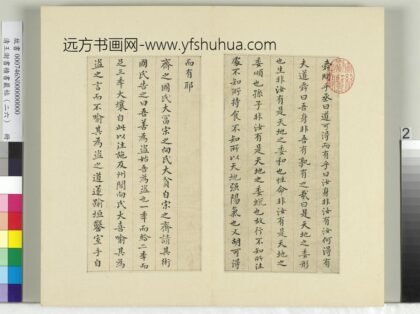 远方书画网-www.yfshuhua.com
舜問乎丞曰道可得而有乎曰汝身非汝有汝何得有
夫道舜曰吾身非吾有孰有之哉曰是天地之委形
也生非汝有是天地之委和也性命非汝有是天地之
委順也孫子非汝有是天地之委蛻也故行不知所往
處不知所持食不知所以天地強陽氣也又胡可得
而有耶
齊之國氏大富宋之向氏大貧自宋之齊請其術
國氏告之曰吾善為盜始吾為盜也一年而給二年而
足三年大壤自此以往施及州閭向氏大喜喻其為
盜之言而不喻其為盜之道遂踰垣鑿室手目
故書 000746N000000000
2